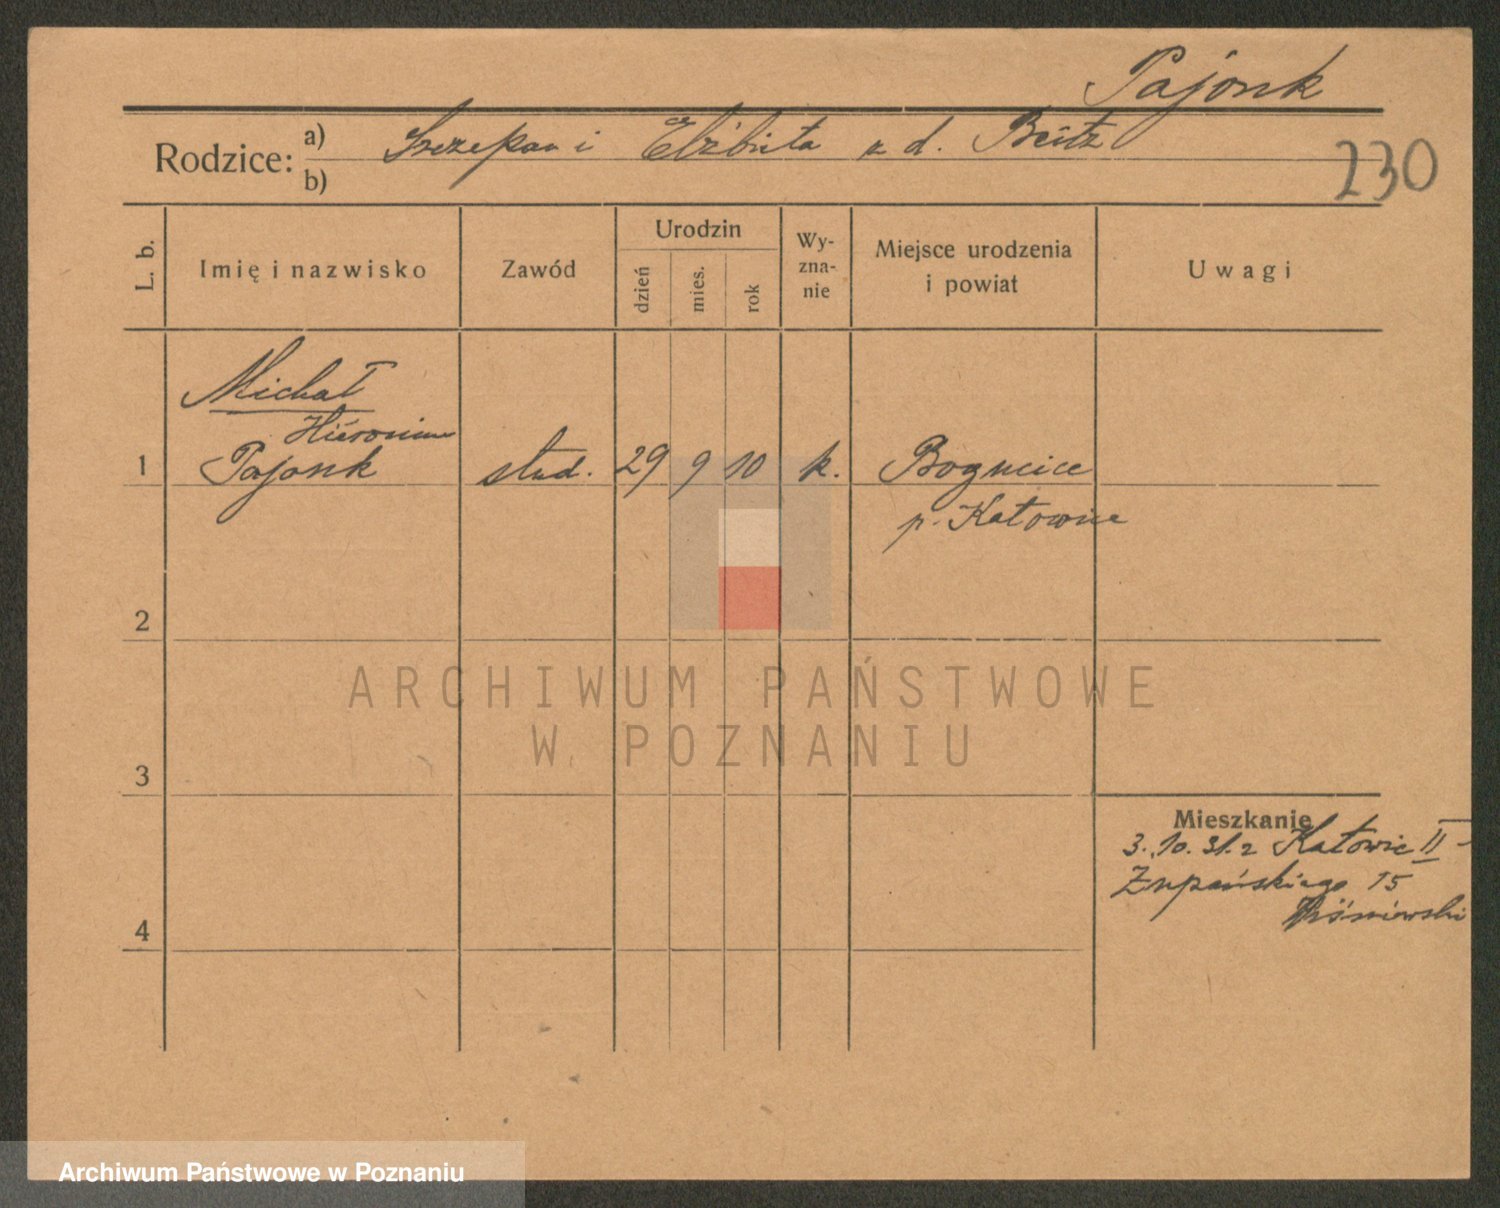 Pajonk
Rodzice: a) Szczepan i Elżbieta z d. Beitz
b)
230
L. b.
Imię i nazwisko
Zawód
Urodzin
dzień
mies.
rok
Wy-
zna-
nie
Miejsce urodzenia
i powiat
Uwagi
Michał
Hieronim
1 Pajonk stud. 29 9 10 k. Bogucice
p. Katowice
2
ARCHIWUM PAŃSTWOWE
W POZNANIU
3
Mieszkanie
3.10.31. z Katowic II
Żupańskiego 15
Wiśniewski
4
Archiwum Państwowe w Poznaniu